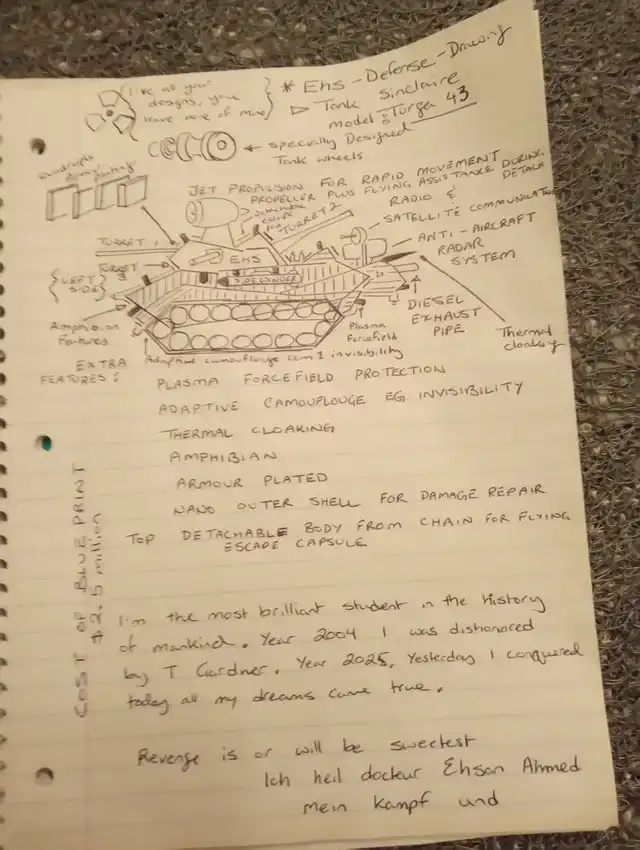 I've all your
designs, you
have none of mine
* Ehs - Defense - Drawing
▷ Tank Sinclaire
model : Turga 43
← specially Designed
Tank wheels
plating
JET PROPULSION FOR RAPID MOVEMENT
PROPELLER PLUS FLYING ASSISTANCE DURING
DETACH
TURRET 2
RADIO &
SATELLITE COMMUNICATION
TURRET 1
ANTI-AIRCRAFT
RADAR
SYSTEM
TURRET 3
EHS
{LEFT
SIDE}
DIESEL
EXHAUST
PIPE
Amphibian
Features
Plasma
Forcefield
Thermal
cloaking
Adaptive camouflouge com 1 invisibility
EXTRA
FEATURES :
PLASMA FORCEFIELD PROTECTION
ADAPTIVE CAMOUFLOUGE EG INVISIBILITY
THERMAL CLOAKING
AMPHIBIAN
ARMOUR PLATED
NANO OUTER SHELL FOR DAMAGE REPAIR
TOP DETACHABLE BODY FROM CHAIN FOR FLYING
ESCAPE CAPSULE
COST OF BLUE PRINT
$2.5 million
I'm the most brilliant student in the History
of mankind. Year 2004 I was dishonored
by T Gardner. Year 2025, Yesterday I conquered
today all my dreams came true.
Revenge is or will be sweetest
Ich heil docteur Ehsan Ahmed
mein kampf und